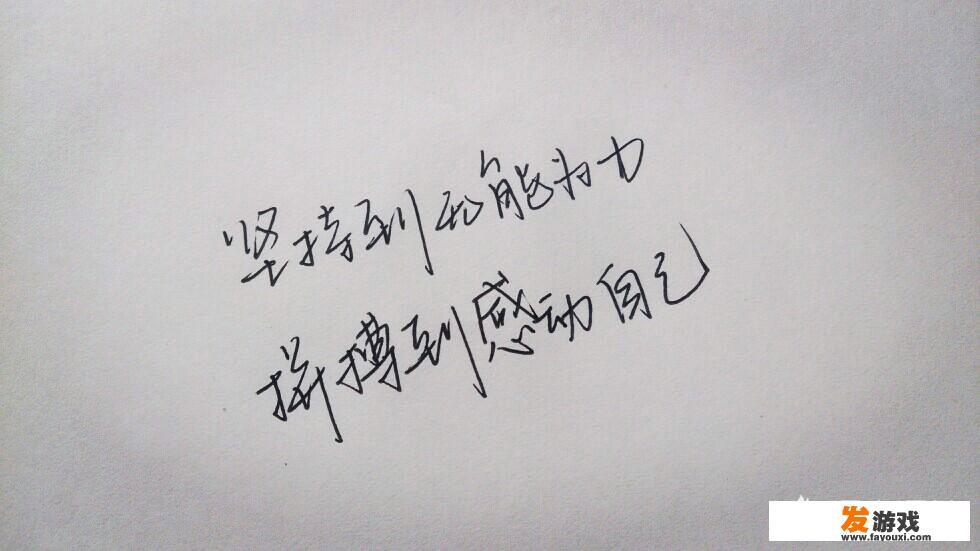 坚持到无能为力
拼搏到感动自己
发游戏
www.fayouxi.com